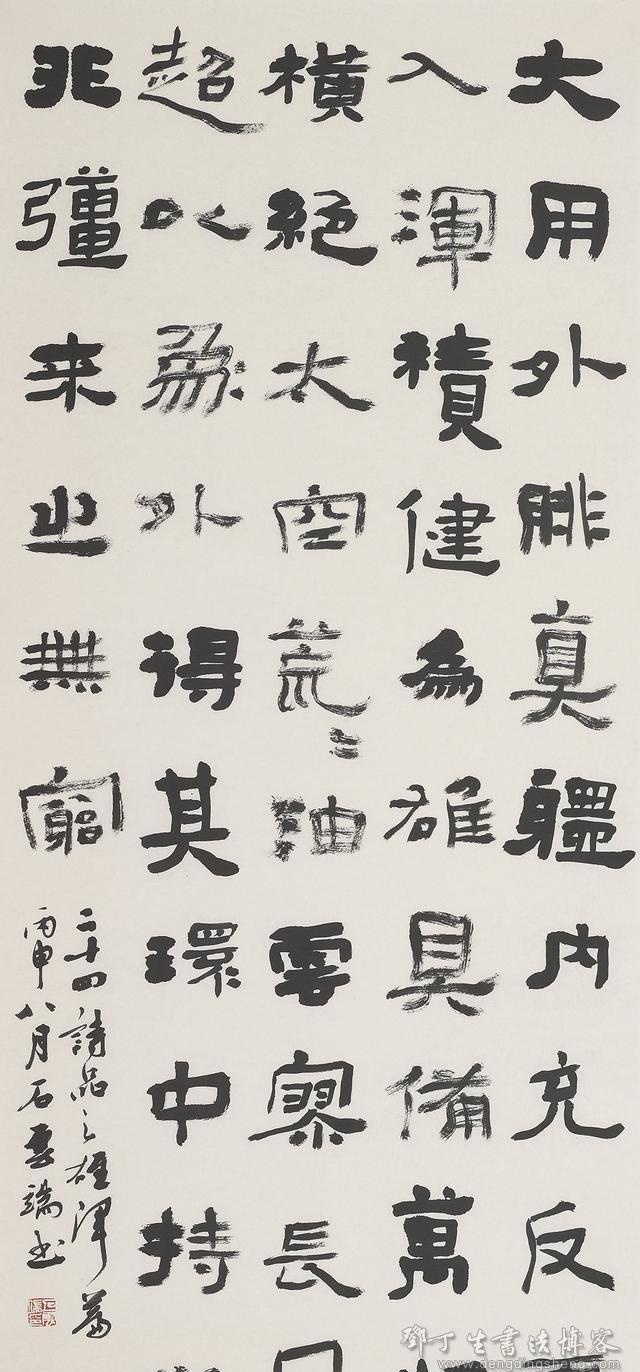 大用外腓真軆內充反
入渾積健為雄具備萬
橫絕太空荒〻油雲寥長
超以象外得其環中持
非彊来之無窮
二十四詩品之雄渾篇
丙申八月石雲端书
鄧丁生書法博客
www.dengdingsheng.com